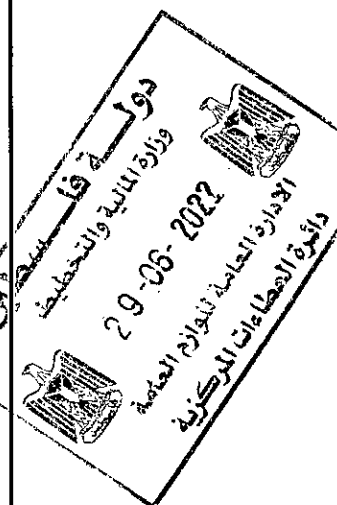 دولـــــة فلـــــسطين
وزارة المالية والتخطيط
29-06-2022
الادارة العامة للوازم العامة
دائرة العطاءات المركزية